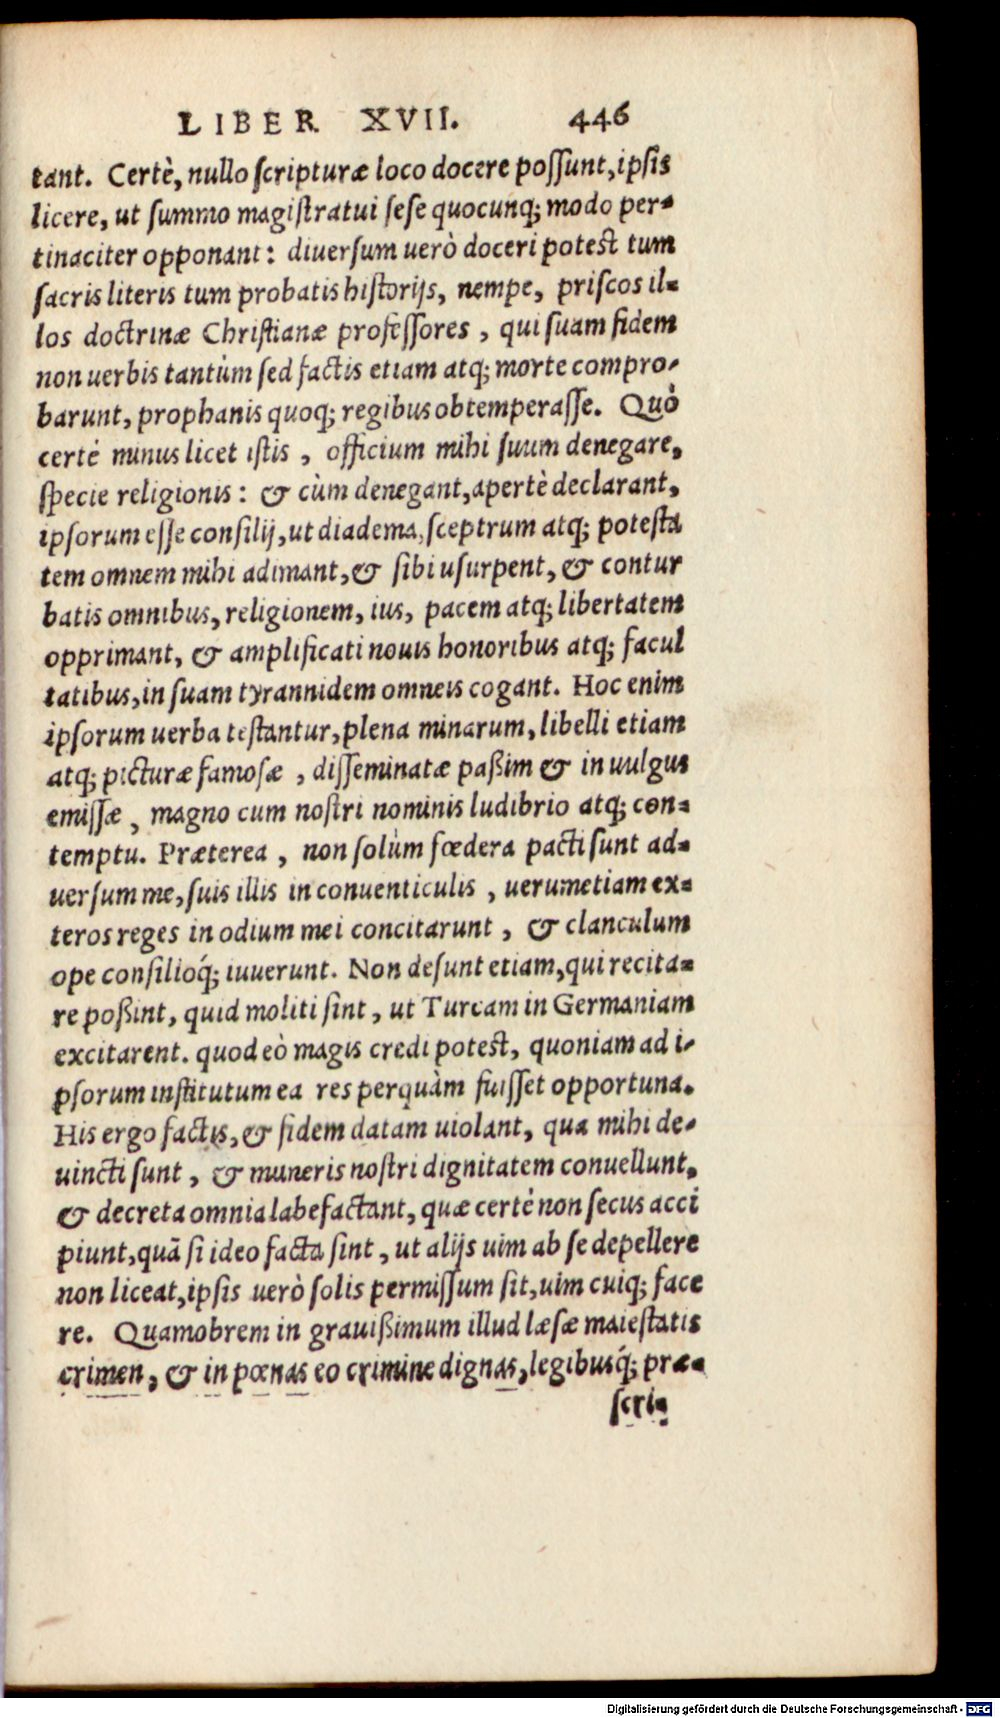 LIBER XVII. 446
tant. Certè, nullo ſcripturæ loco docere poſſunt, ipſis
licere, ut ſummo magiſtratui ſeſe quocunq; modo per-
tinaciter opponant: diuerſum uerò doceri poteſt tum
ſacris literis tum probatis hiſtorijs, nempe, priſcos il-
los doctrinæ Chriſtianæ profeſſores, qui ſuam fidem
non uerbis tantùm ſed factis etiam atq; morte compro-
barunt, prophanis quoq; regibus obtemperaſſe. Quò
certè minus licet iſtis, officium mihi ſuum denegare,
ſpecie religionis: & cùm denegant, apertè declarant,
ipſorum eſſe conſilij, ut diadema, ſceptrum atq; poteſta
tem omnem mihi adimant, & ſibi uſurpent, & contur
batis omnibus, religionem, ius, pacem atq; libertatem
opprimant, & amplificati nouis honoribus atq; facul
tatibus, in ſuam tyrannidem omneis cogant. Hoc enim
ipſorum uerba teſtantur, plena minarum, libelli etiam
atq; picturæ famoſæ, diſſeminatæ paßim & in uulgus
emiſſæ, magno cum noſtri nominis ludibrio atq; con-
temptu. Præterea, non ſolùm fœdera pacti ſunt ad-
uerſum me, ſuis illis in conuenticulis, uerumetiam ex-
teros reges in odium mei concitarunt, & clanculum
ope conſilioq́; iuuerunt. Non deſunt etiam, qui recita-
re poßint, quid moliti ſint, ut Turcam in Germaniam
excitarent. quod eò magis credi poteſt, quoniam ad i-
pſorum inſtitutum ea res perquàm fuiſſet opportuna.
His ergo factis, & fidem datam uiolant, qua mihi de-
uincti ſunt, & muneris noſtri dignitatem conuellunt,
& decreta omnia labefactant, quæ certè non ſecus acci
piunt, quã ſi ideo facta ſint, ut alijs uim ab ſe depellere
non liceat, ipſis uerò ſolis permiſſum ſit, uim cuiq; face
re. Quamobrem in grauißimum illud læſæ maieſtatis
crimen, & in pœnas eo crimine dignas, legibusq́; præ-
ſcri-
Digitalisierung gefördert durch die Deutsche Forschungsgemeinschaft - DFG